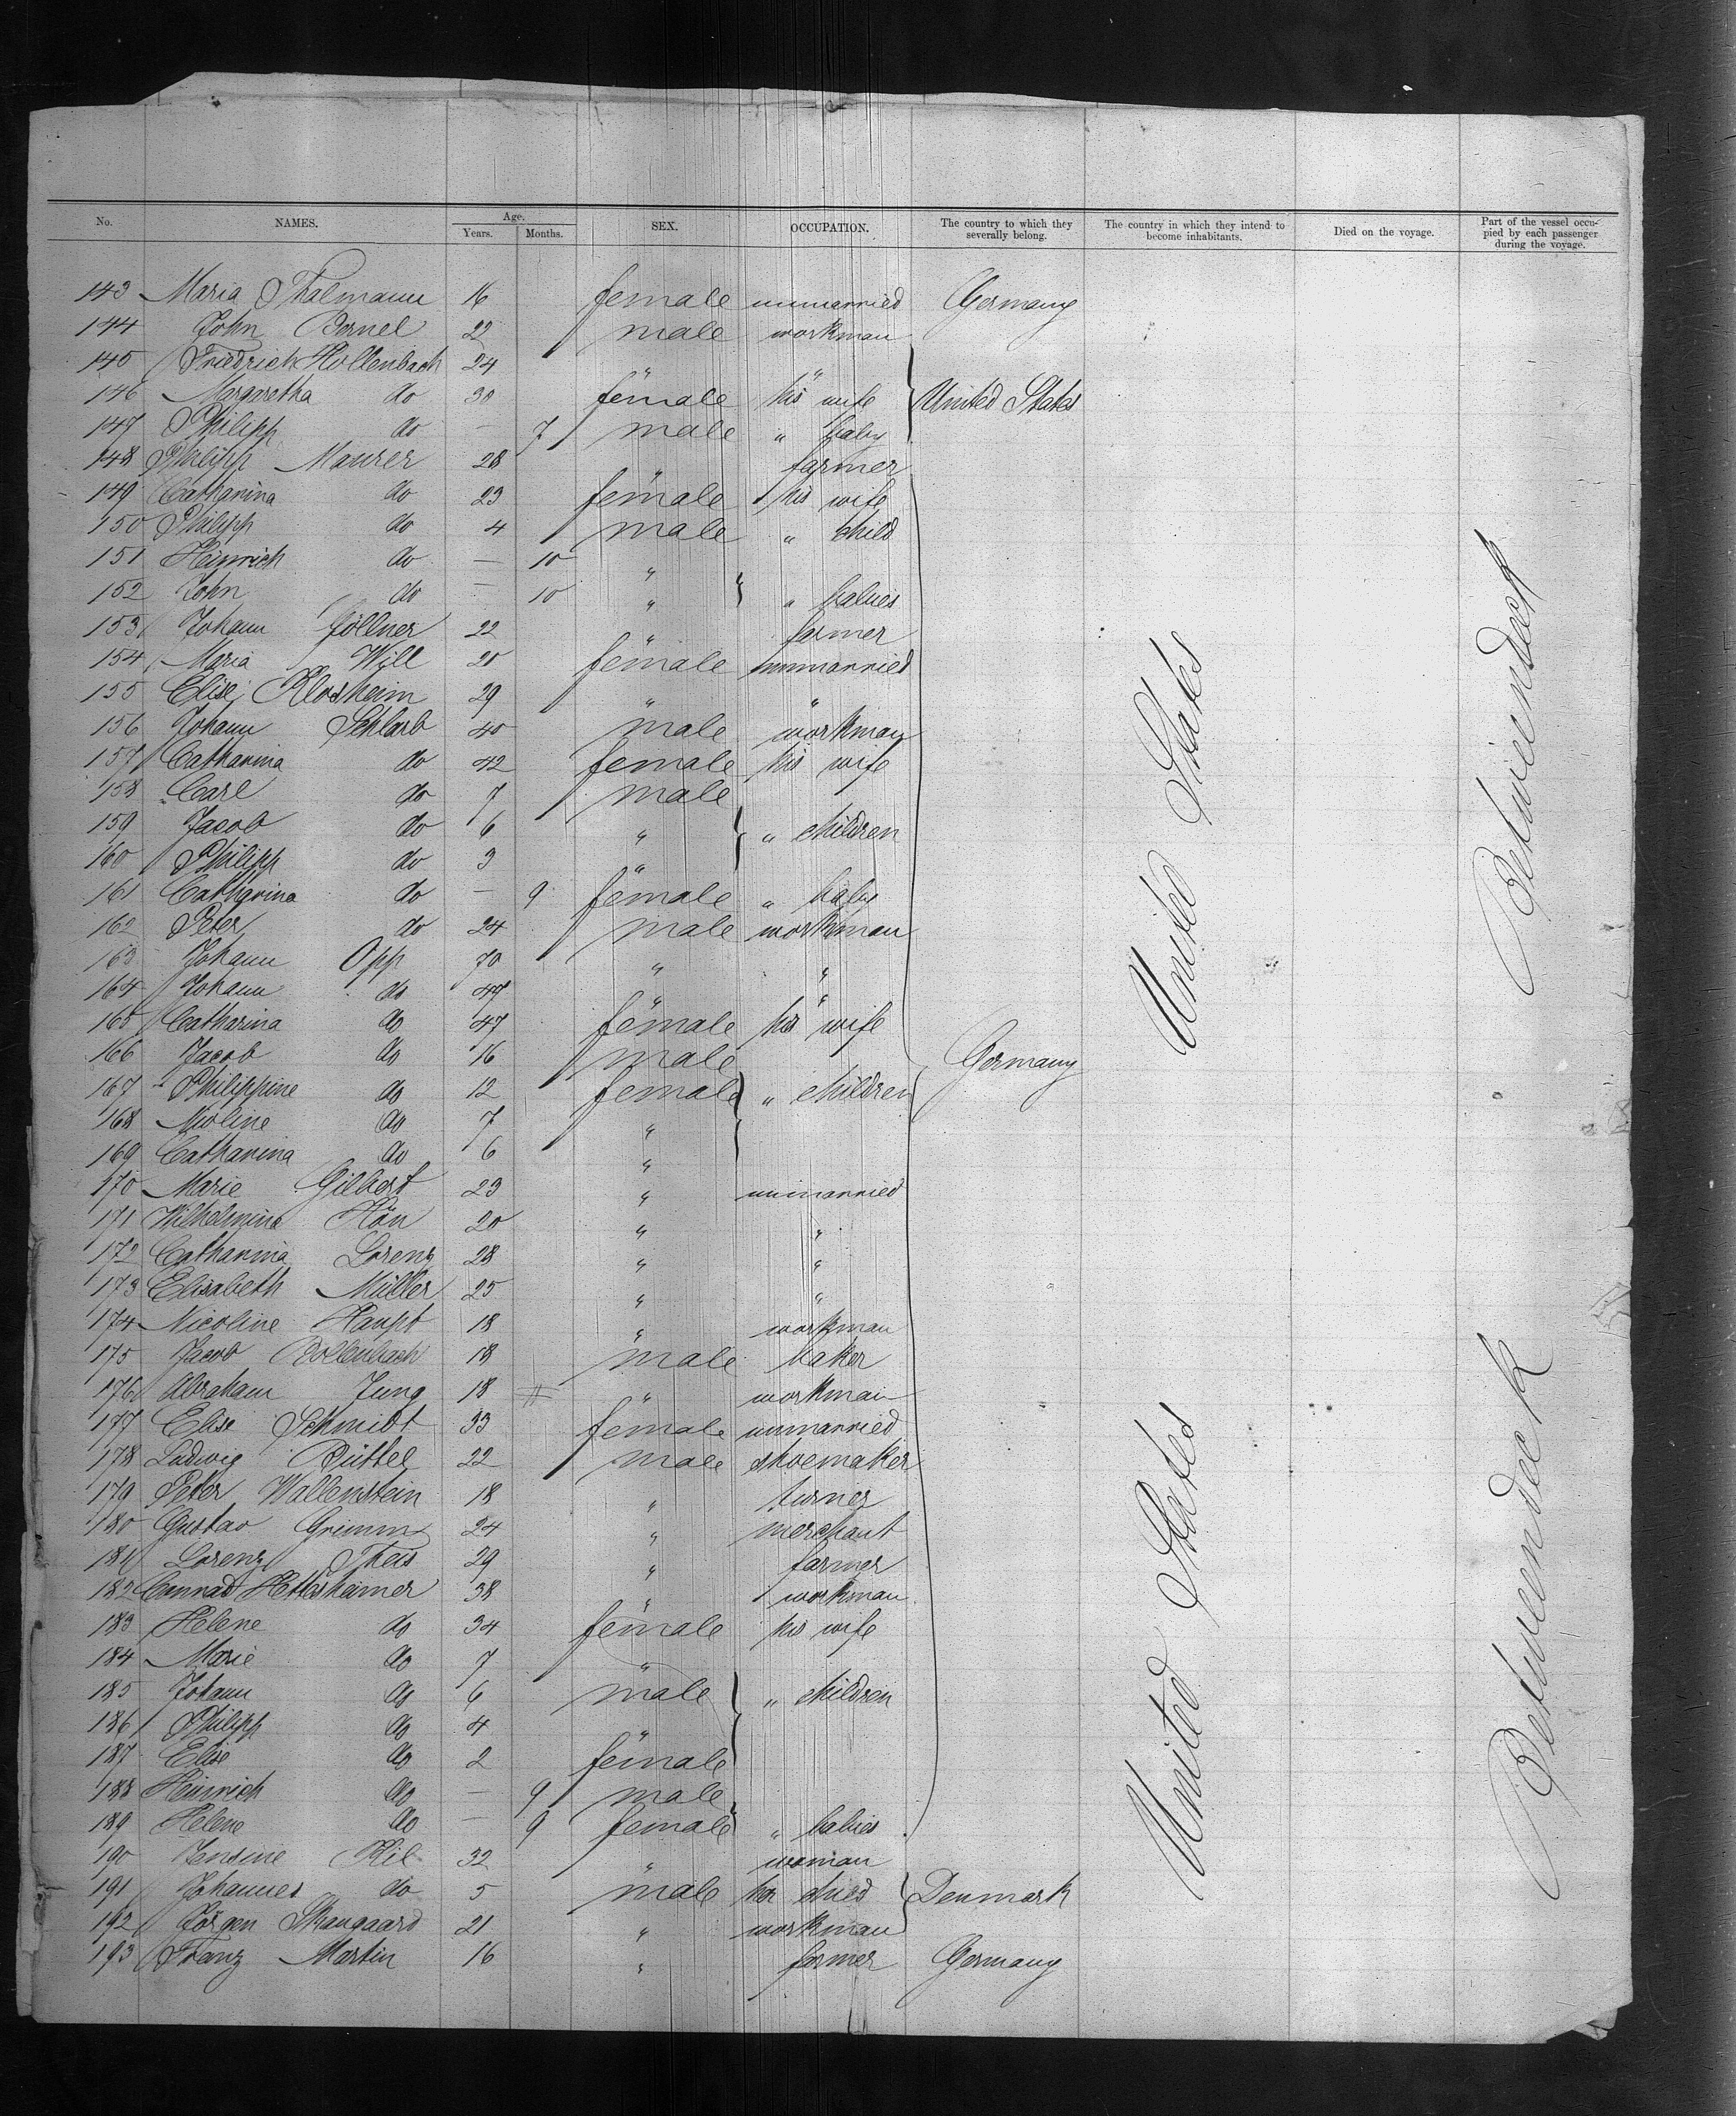 No. NAMES. Age. Years. Months. SEX. OCCUPATION. The country to which they severally belong. The country in which they intend to become inhabitants. Died on the voyage. Part of the vessel occupied by each passenger during the voyage.
143 Maria Thalmann 16 female unmarried Germany
144 John Bornel 22 male workman
145 Friedrich Hollenbach 24 " "
146 Margaretha do 30 female his wife United States
147 Philipp do — 7 male " baby
148 Philipp Maurer 28 " farmer
149 Catharina do 23 female his wife
150 Philipp do 4 male " child
151 Heinrich do — 10 "
152 John do — 10 " " babies
153 Johann Zöllner 22 " farmer
154 Maria Will 20 female unmarried
155 Elise Klosheim 29 " "
156 Johann Schlarb 40 male workman
157 Catharina do 42 female his wife
158 Carl do 7 male
159 Jacob do 6 " " children
160 Philipp do 3 "
161 Catharina do — 9 female " baby
162 Peter do 24 male workman
163 Johann Opp 70 " "
164 Johann do 47 " "
165 Catharina do 47 female his wife
166 Jacob do 16 male Germany
167 Philippine do 12 female " children
168 do 7 "
169 Catharina do 6 "
170 Marie Gilbert 23 " unmarried
171 Wilhelmina Hön 20 " "
172 Catharina Lorenz 28 " "
173 Elisabeth Müller 25 " "
174 Nicoline Haupt 18 " workman
175 Jacob Bollenbach 18 male baker
176 Abraham Jung 18 " workman
177 Elise Schmidt 33 female unmarried
178 Ludwig Büttel 22 male shoemaker
179 Peter Wallenstein 18 " turner
180 Gustav Grimm 24 " merchant
181 Lorenz Theis 29 " farmer
182 Conrad Hettesheimer 38 " workman
183 Helene do 34 female his wife
184 Marie do 7 "
185 Johann do 6 male " children
186 Philipp do 4 "
187 Elise do 2 female
188 Heinrich do — 9 male
189 Helene do — 9 female " babies
190 Jensine Kil 32 " woman
191 Johannes do 5 male her child Denmark
192 Jörgen Skaugaard 21 " workman
193 Franz Martin 16 " farmer Germany
United States
United States
Betweendeck
Betweendeck